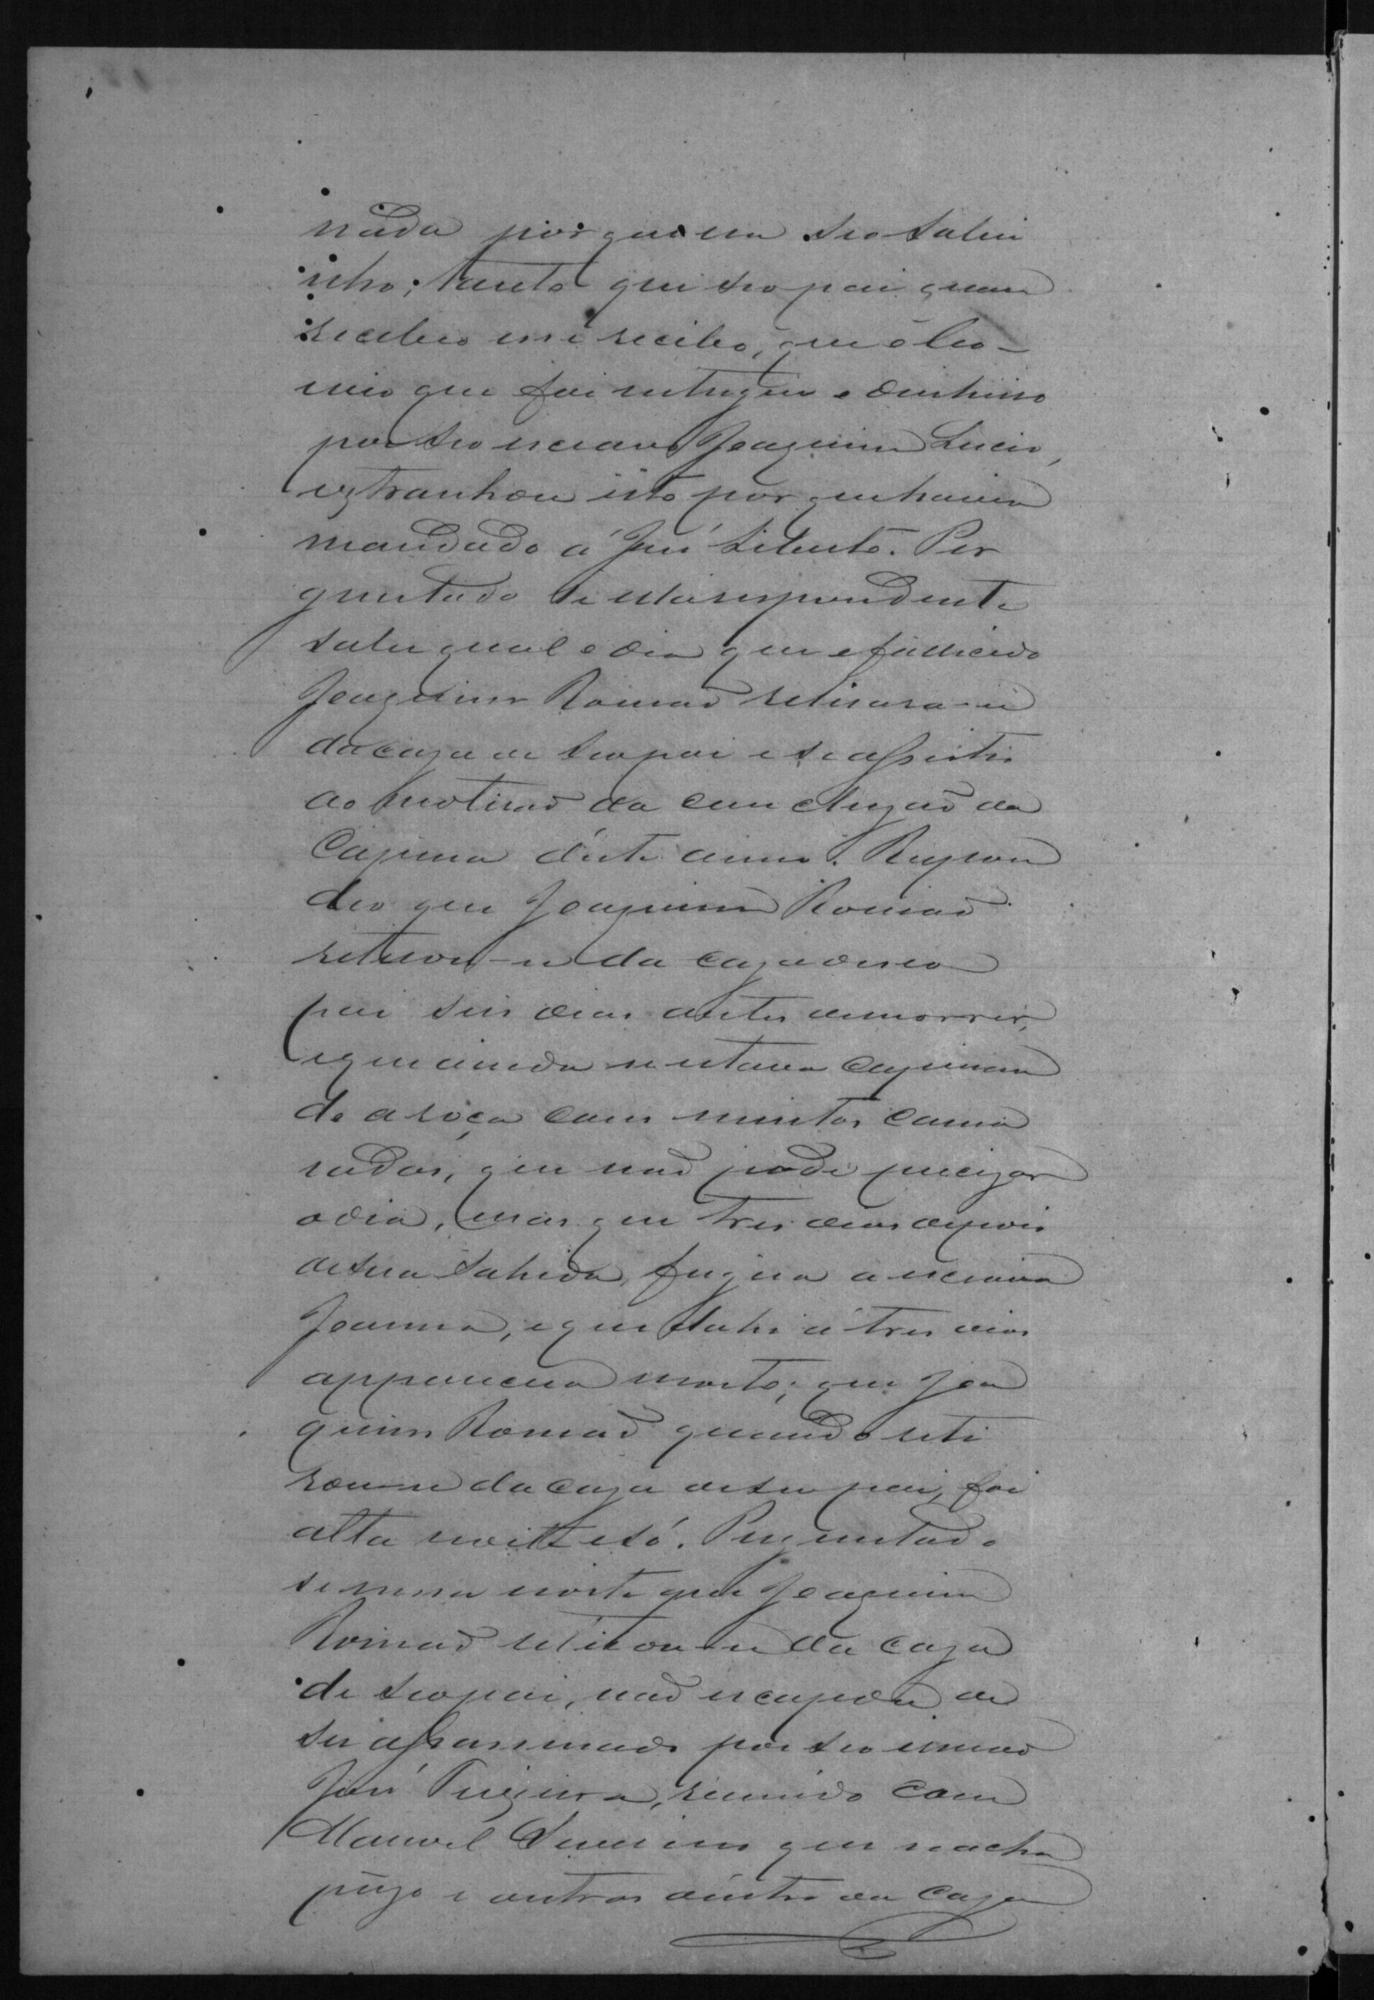 nada por que era seo sobri
nho; tanto que seo pai quan
recebeo esse recibo, que
que foi entregue o dinheiro
por seo escravo Joaquim Lucio,
extranhou isto por que havia
mandado á José Liberto. Per
guntado se ella respondente
sabe qual o dia que o fallecido
Joaquim Romaõ retirara-se
da caza de seo pai e se assistio
ao mutiraõ da concluzaõ da
Capina d'este anno. Respon
deo que Joaquim Romaõ
retirou-se da caza de seo
pai seis dias antes de morrer,
e que ainda se estava capinan
do a roça com muitos cama
radas, que naõ póde precizar
o dia, mas que tres dias depois
de sua sahida, fugira a escrava
Joanna, e que dahi á tres dias
apparecera morto; que Joa
quim Romaõ quando reti
rou-se da caza de seu pai, foi
alta noite e só. Perguntado
se nessa noite que Joaquim
Romaõ retirou-se da caza
de seo pai, naõ escapou de
ser assassinado por seo irmaõ
José Teixeira, reunido com
Manoel que se acha
prezo e outros dentro da caza